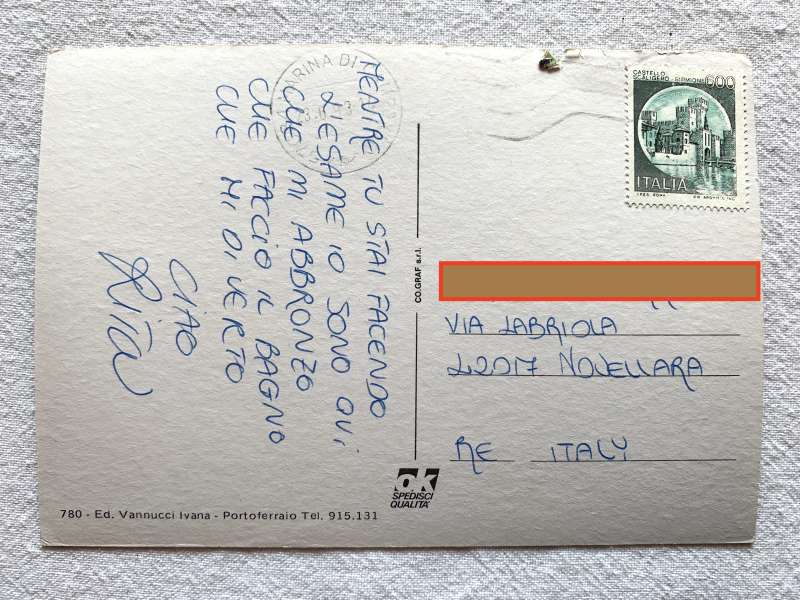 MENTRE TU STAI FACENDO
L'ESAME IO SONO QUI
CHE MI ABBRONZO
CHE FACCIO IL BAGNO
CHE MI DIVERTO
CIAO
Rita
MARINA DI
CO.GRAF s.r.l.
CASTELLO
SCALIGERO - SIRMIONE
600
ITALIA
VIA LABRIOLA
42017 NOVELLARA
RE ITALY
ok
SPEDISCI
QUALITA'
780 - Ed. Vannucci Ivana - Portoferraio Tel. 915.131